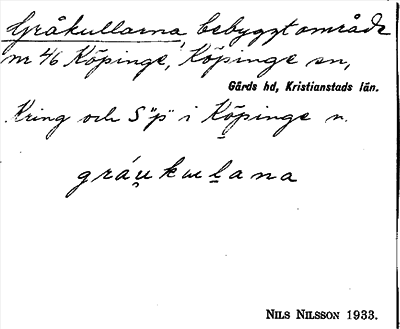 Gråkullarna, bebyggt område
nr 46 Köpinge, Köpinge sn,
Gärds hd, Kristianstads län.
Kring och S "p" i Köpinge n.
gráṷkɯḷana
NILS NILSSON 1933.